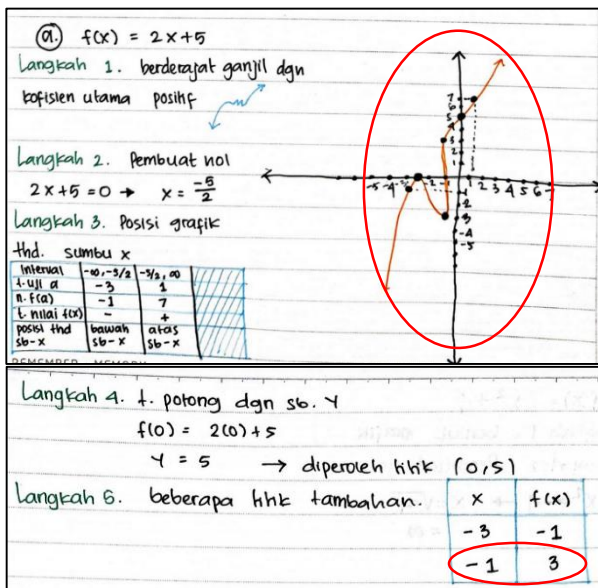 a. f(x) = 2x+5
Langkah 1. berderajat ganjil dgn
kofisien utama positif
Langkah 2. Pembuat nol
2x+5=0 → x = -5/2
Langkah 3. Posisi grafik
thd. sumbu x
Interval -∞,-5/2 -5/2,∞
t. uji a -3 1
n. f(a) -1 7
t. nilai f(x) - +
posisi thd sb-x bawah sb-x atas sb-x
REMEMBER MEMORY
7
6
5
4
3
2
1
-5 -4 -3 -2 -1 1 2 3 4 5 6 7
-1
-2
-3
-4
-5
Langkah 4. t. potong dgn sb. Y
f(0) = 2(0)+5
Y = 5 → diperoleh titik (0,5)
Langkah 5. beberapa titik tambahan.
x f(x)
-3 -1
-1 3